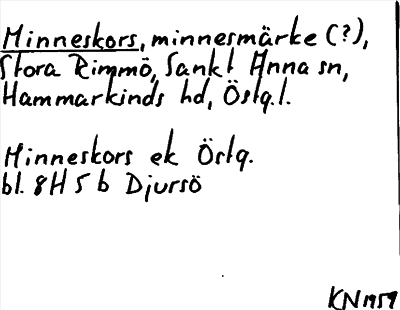 Minneskors, minnesmärke (?),
Stora Rimmö, Sankt Anna sn,
Hammarkinds hd, Östg.l.
Minneskors ek Östg.
bl. 8H 5 b Djursö
KN 1959